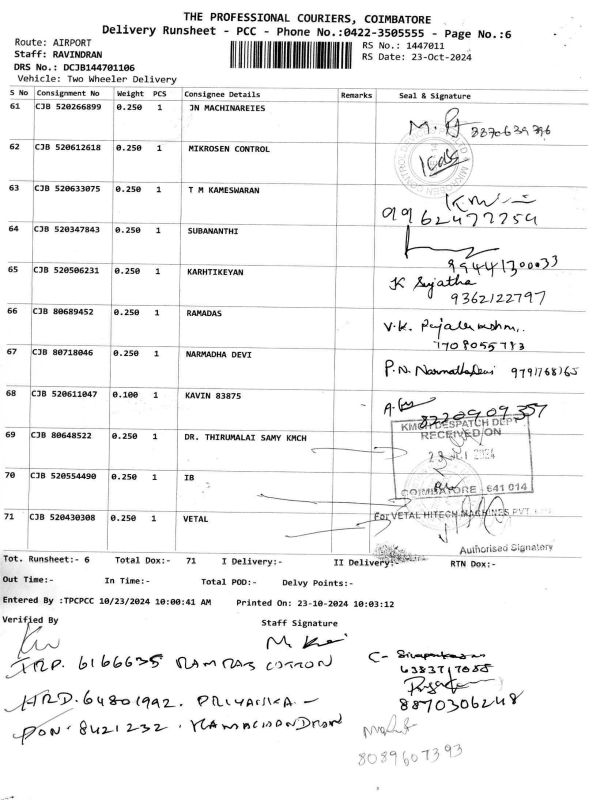 THE PROFESSIONAL COURIERS, COIMBATORE
Delivery Runsheet - PCC - Phone No.:0422-3505555 - Page No.:6
Route: AIRPORT RS No.: 1447011
Staff: RAVINDRAN RS Date: 23-Oct-2024
DRS No.: DCJB144701106
Vehicle: Two Wheeler Delivery
S No Consignment No Weight PCS Consignee Details Remarks Seal & Signature
61 CJB 520266899 0.250 1 JN MACHINAREIES
62 CJB 520612618 0.250 1 MIKROSEN CONTROL
63 CJB 520633075 0.250 1 T M KAMESWARAN
9962477259
64 CJB 520347843 0.250 1 SUBANANTHI
9944130033
65 CJB 520506231 0.250 1 KARHTIKEYAN K Sujatha
9362122797
66 CJB 80689452 0.250 1 RAMADAS
V.K.
67 CJB 80718046 0.250 1 NARMADHA DEVI P.N. Narmadha Devi 9791768165
68 CJB 520611047 0.100 1 KAVIN 83875
8220909357
KMCH DESPATCH DEPT
69 CJB 80648522 0.250 1 DR. THIRUMALAI SAMY KMCH RECEIVED ON
2024
70 CJB 520554490 0.250 1 IB
COIMBATORE - 641 014
71 CJB 520430308 0.250 1 VETAL For VETAL HITECH MACHINES PVT
Authorised Signatory
Tot. Runsheet:- 6 Total Dox:- 71 I Delivery:- II Delivery:- RTN Dox:-
Out Time:- In Time:- Total POD:- Delvy Points:-
Entered By :TPCPCC 10/23/2024 10:00:41 AM Printed On: 23-10-2024 10:03:12
Verified By Staff Signature
TRP. 6166635 RAMRAJ COTTON
HRD. 64801992. PRIYANKA -
8870306248
PON. 8421232. RAMACHANDRAN
8089607393